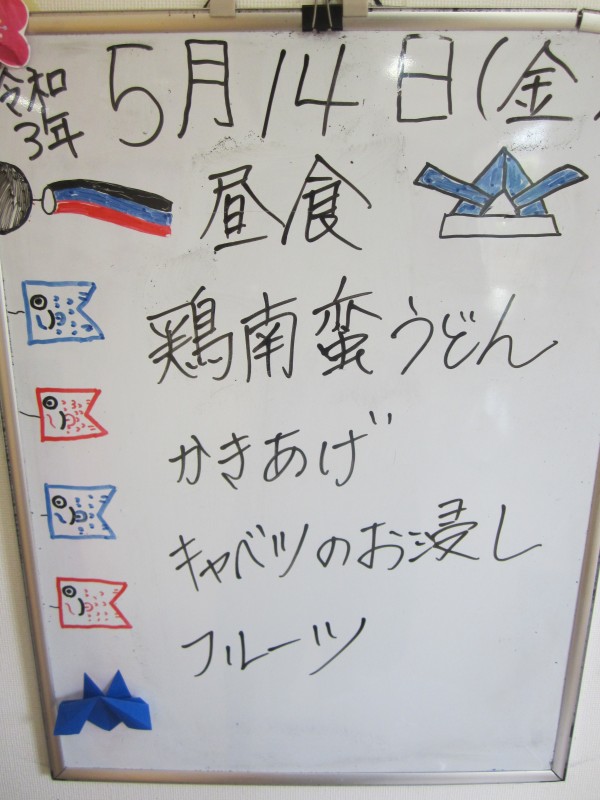 令和
3年
5月14日(金)
昼食
鶏南蛮うどん
かきあげ
キャベツのお浸し
フルーツ